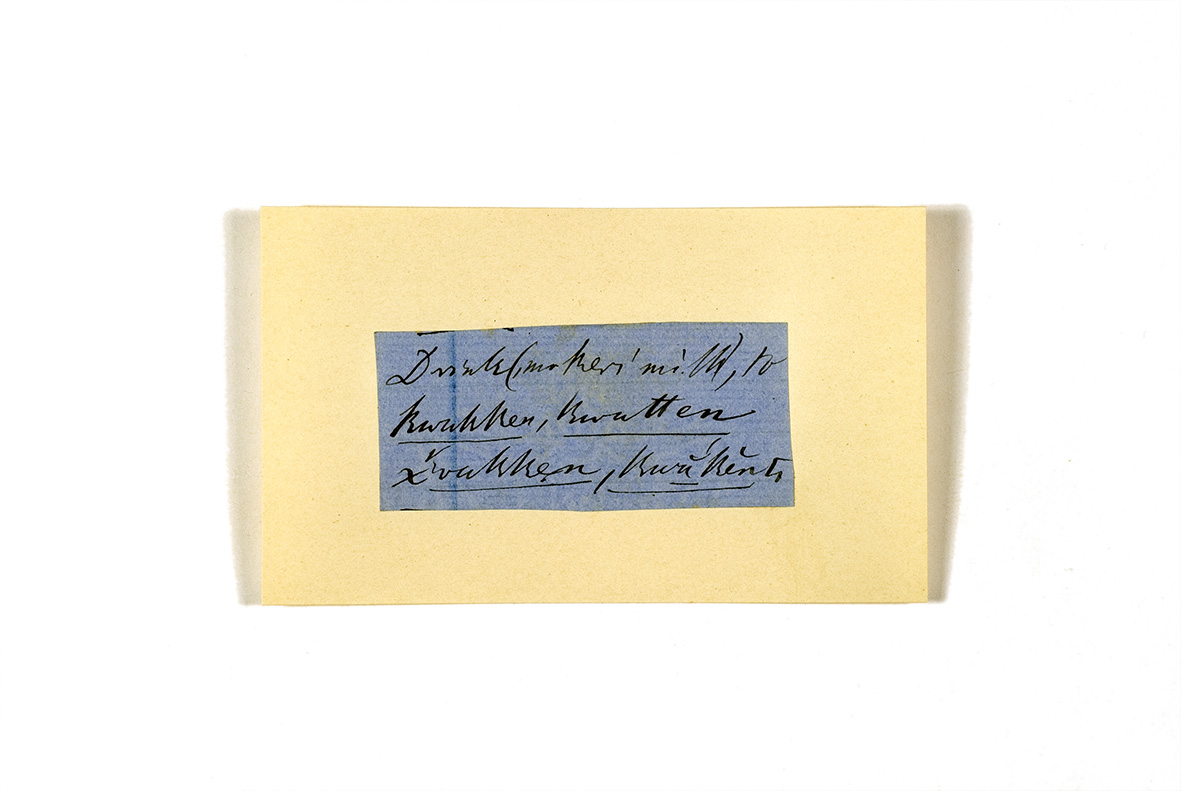 Drink (mothers' milk), to
kwakken, kwatten
k̆wakkęn, kwā́kĕn ti